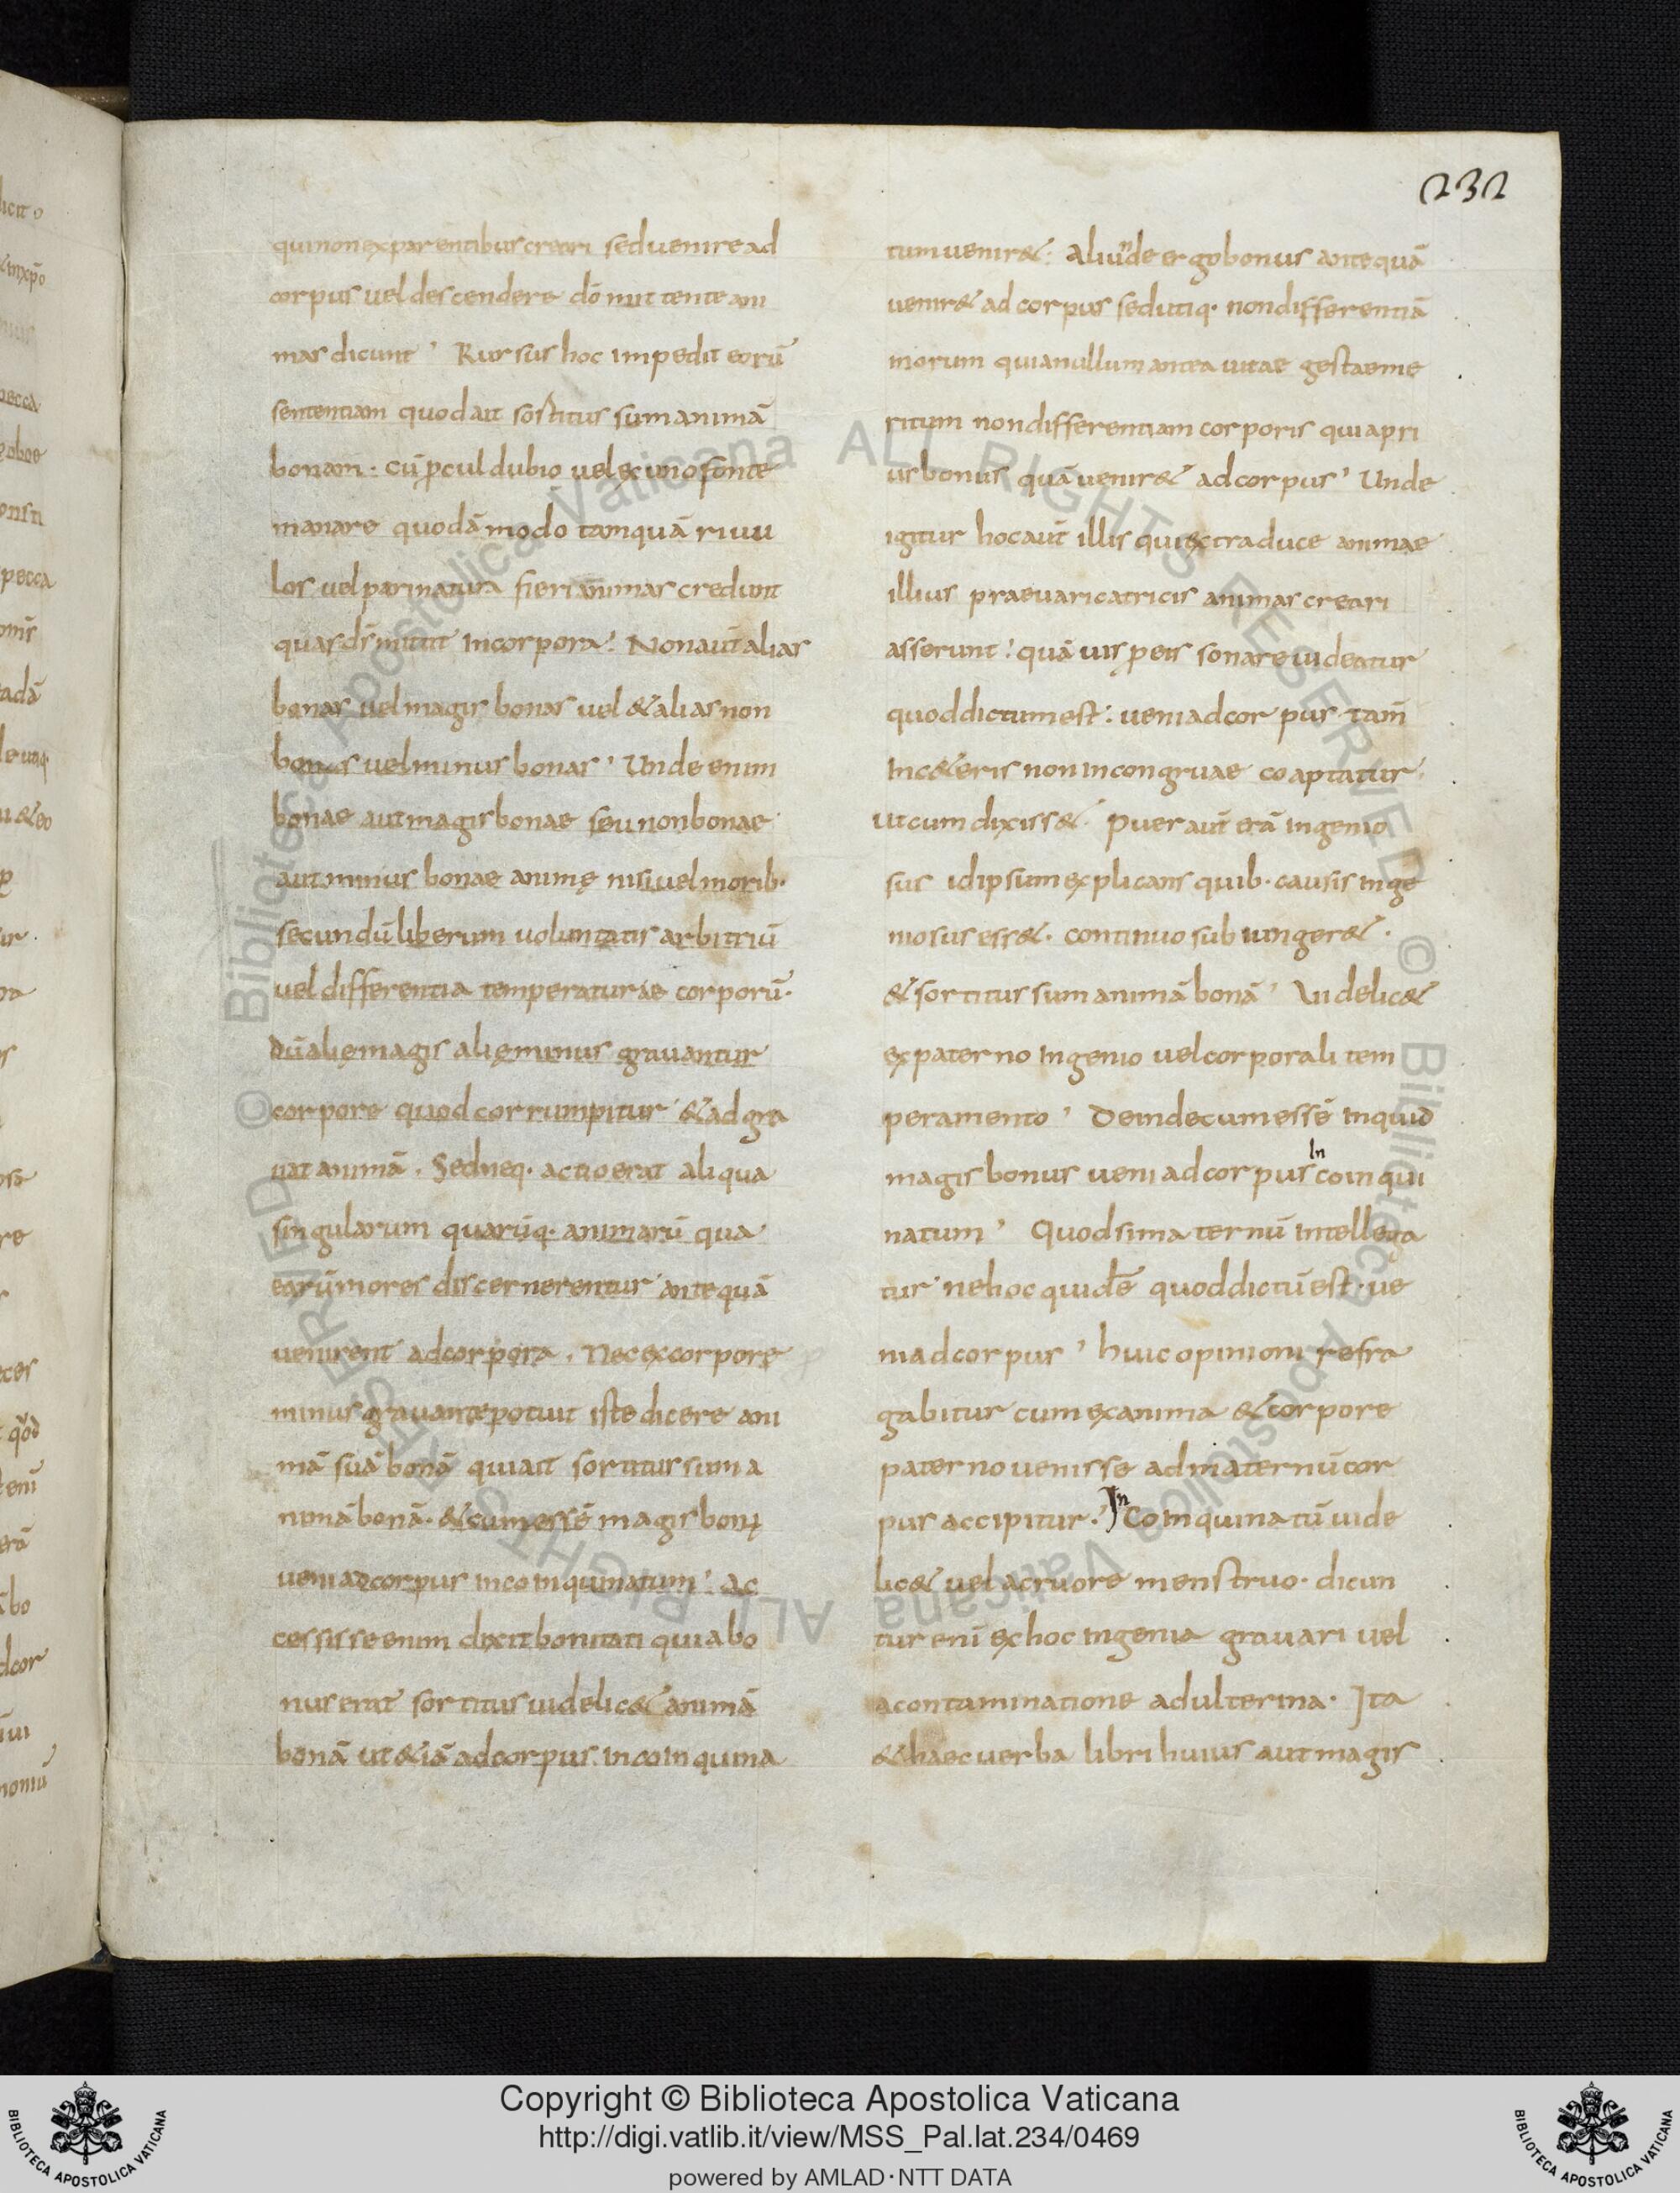 232
qui non ex parentibus creari sed venire ad
corpus vel descendere dō mittente ani
mas dicunt, Rursus hoc impedit eorū
sententiam quod ait sostitus sum animā
bonam: cū ꝓcul dubio vel ex uno fonte
manare quodā modo tamquā rivu
los vel pari natura fieri animas credunt
quas d̄s mittit in corpora: Non aut̄ alias
bonas vel magis bonas vel & alias non
bonas vel minus bonas, Unde enim
bonae aut magis bonae seu non bonae
aut minus bonae animę nisi vel morib·
secundū liberum voluntatis arbitriū
vel differentia temperaturae corporū·
dū alię magis alię minus gravantur
corpore quod corrumpitur & adgra
vat animā. Sed neq· actio erat aliqua
singularum quarūq· animarū qua
earū mores discernerentur antequā
venirent ad corpora. Nec ex corpore
minus gravante potuit iste dicere ani
mā suā bonā qui ait sortitus sum a
nimā bonā· & cum essē magis bonus
veni ad corpus incoinquinatum: Ac
cessisse enim dixit bonitati qua bo
nus erat sortitus videlic& animā
bonā ut & iā ad corpus incoinquina
tum venir&: aliunde ergo bonus antequā
venir& ad corpus sed utiq· non differentiā
morum quia nullum antea vitae gestae me
ritum non differentiam corporis quia pri
us bonus quā venir& ad corpus, Unde
igitur hoc aut̄ illis qui ex traduce animae
illius praevaricatricis animas creari
asserunt: quā vis ꝓ eis sonare videatur
quod dictum est: veni ad corpus tam̄
in c&eris non incongruae coaptatur·
ut cum dixiss& puer aut̄ erā ingenio
sus id ipsum explicans quib· causis inge
niosus ess&· continuo subiunger&·
& sortitus sum animā bonā, Videlic&
ex paterno ingenio vel corporali tem
peramento, Deinde cum essē inquid
magis bonus veni ad corpus In coinqui
natum, Quod si maternū intellega
tur ne hoc quidē quod dictū est· ve
ni ad corpus, huic opinioni refra
gabitur cum ex anima & corpore
paterno venisse ad maternū cor
pus accipitur., In Coinquinatū vide
lic& vel a cruore menstruo· dicun
tur enī ex hoc ingenia gravari vel
a contaminatione adulterina· Ita
& haec verba libri huius aut magis
© Biblioteca Apostolica Vaticana ALL RIGHTS RESERVED
Copyright © Biblioteca Apostolica Vaticana
http://digi.vatlib.it/view/MSS_Pal.lat.234/0469
powered by AMLAD·NTT DATA
BIBLIOTECA APOSTOLICA VATICANA
BIBLIOTECA APOSTOLICA VATICANA